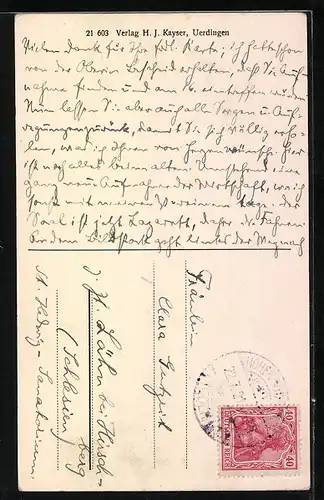 21 603 Verlag H. J. Kayser, Uerdingen
Vielen Dank für Ihre frdl. Karte; ich hatte schon
von der Oberin Bescheid erhalten, daß Sie Auf-
nahme finden und am 16. eintreffen würden
Nun lassen Sie aber auch alle Sorgen u. Auf-
regungen zurück, damit Sie sich völlig erho-
len, was ich Ihnen von Herzen wünsche. Hier
ist noch alles beim alten. Umstehend eine
ganz neue Aufnahme der Wirtschaft, wo ich
sonst mit meinen Vereinen tage. Der
Saal ist jetzt Lazarett, daher die Fahnen.
An dem Bildstock geht links der Weg nach
Fräulein
Clara
z. Zt. Lähn bei Hirsch-
berg
(Schlesien)
St. Hedwig-Sanatorium
DEUTSCHES REICH
10 10